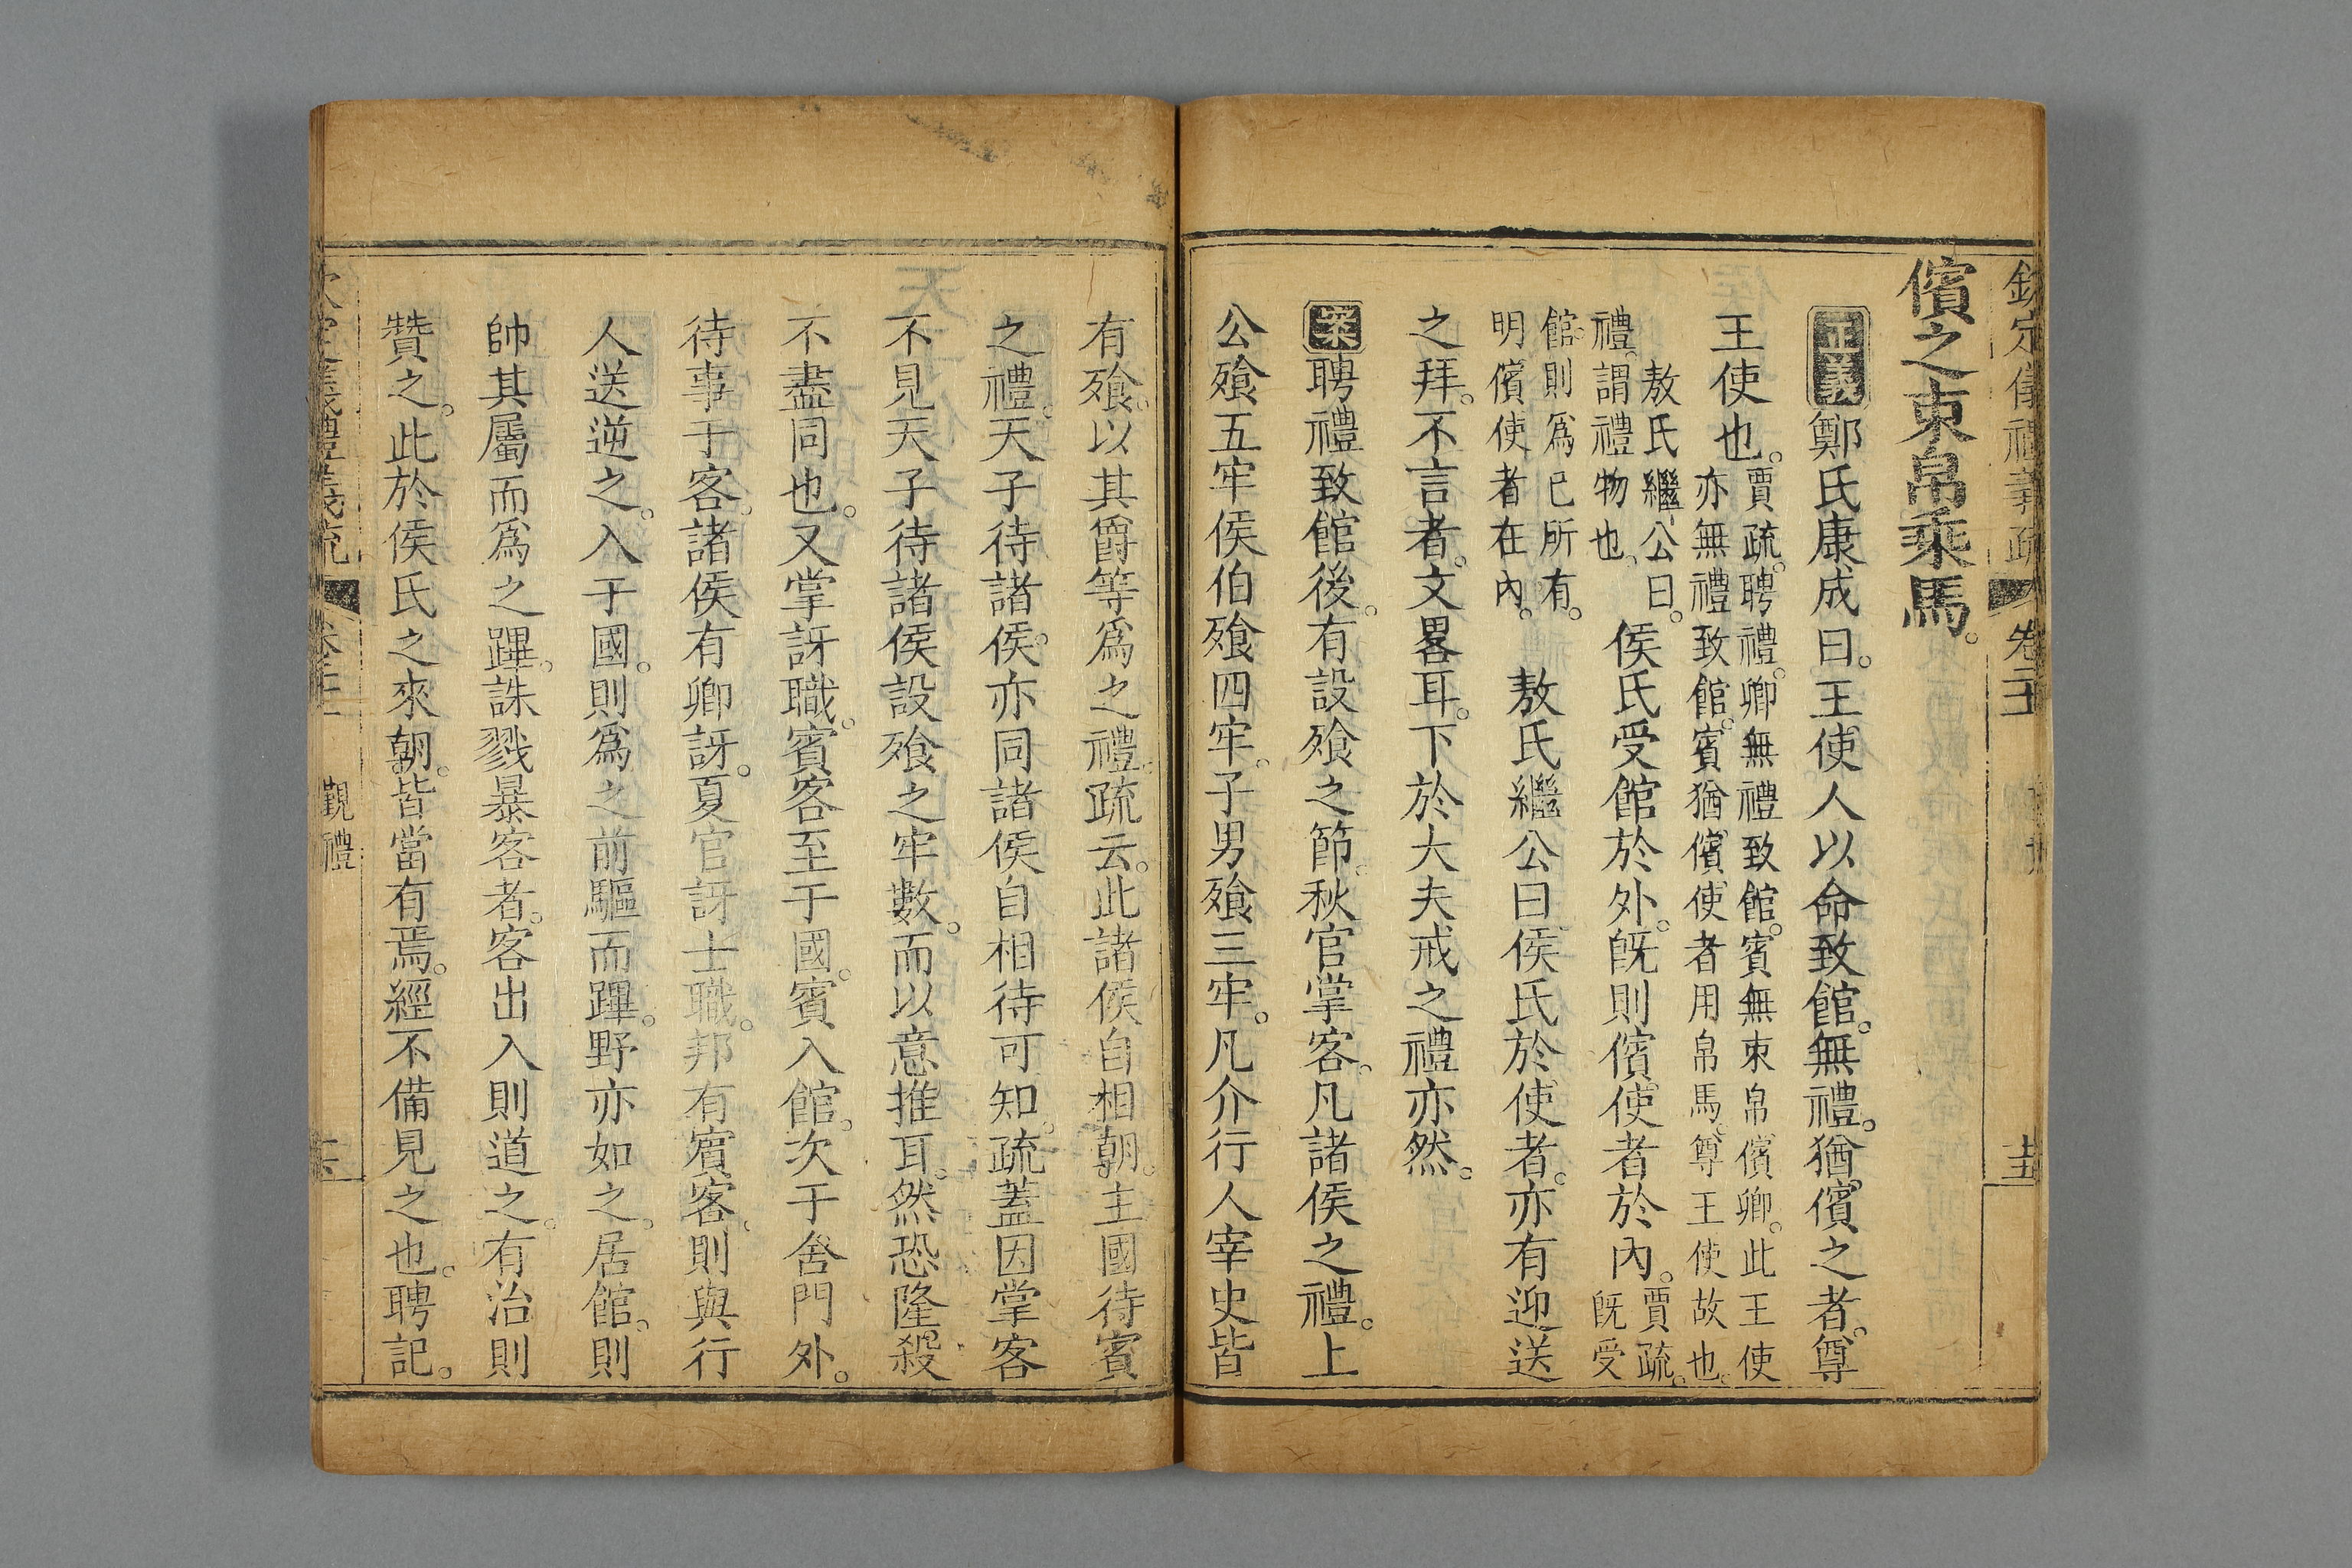 欽定儀禮義疏 卷二十 十五
儐之束帛乘馬。
正義鄭氏康成曰。王使人以命致館。無禮。猶儐之者。尊
王使也。賈疏。聘禮。卿無禮致館。賓無束帛儐卿。此王使
亦無禮致館。賓猶儐使者用帛馬。尊王使故也。
敖氏繼公曰。
禮。謂禮物也。
侯氏受館於外。旣則儐使者於內。賈疏。
旣受
館則爲已所有。
明儐使者在內。
敖氏繼公曰侯氏於使者。亦有迎送
之拜。不言者。文畧耳。下於大夫戒之禮亦然。
案聘禮致館後。有設飧之節。秋官掌客。凡諸侯之禮。上
公飧五牢侯伯飧四牢。子男飧三牢。凡介行人宰史皆
有飧。以其爵等爲之禮。疏云。此諸侯自相朝。主國待賓
之禮。天子待諸侯。亦同諸侯自相待可知。疏蓋因掌客
不見天子待諸侯設飧之牢數。而以意推耳。然恐隆殺
不盡同也。又掌訝職。賓客至于國。賓入館。次于舍門外。
待事于客。諸侯有卿訝。夏官訝士職。邦有賓客。則與行
人送逆之。入于國。則爲之前驅而蹕。野亦如之。居館。則
帥其屬而爲之蹕。誅戮暴客者。客出入則道之。有治則
贊之。此於侯氏之來朝。皆當有焉。經不備見之也。聘記。
覲禮